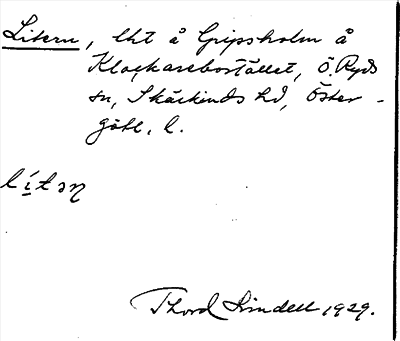 Litern, lht å Gripsholm å
Klockarebostället, Ö. Ryds
sn, Skärkinds hd, Öster-
götl. l.
Thord Lindell 1929.